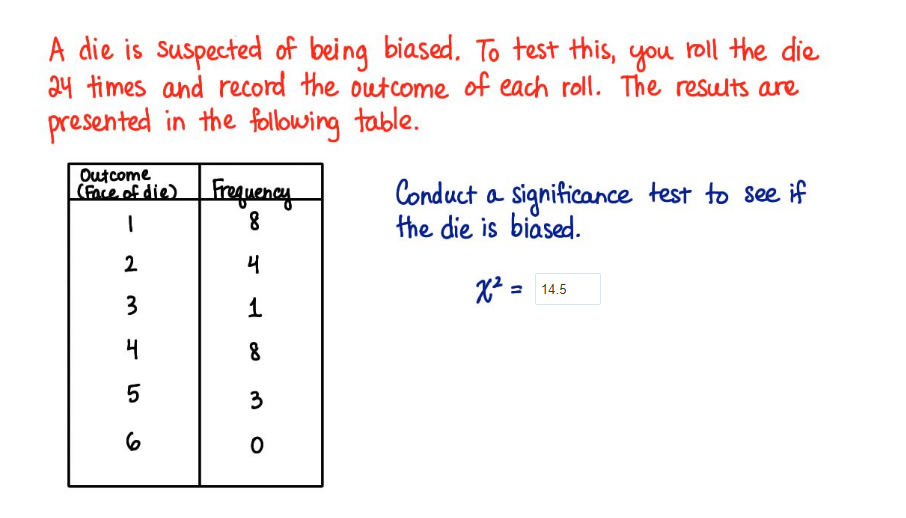 A die is suspected of being biased. To test this, you roll the die
24 times and record the outcome of each roll. The results are
presented in the following table.
Outcome
(Face of die) Frequency
1 8
2 4
3 1
4 8
5 3
6 0
Conduct a significance test to see if
the die is biased.
χ² = 14.5